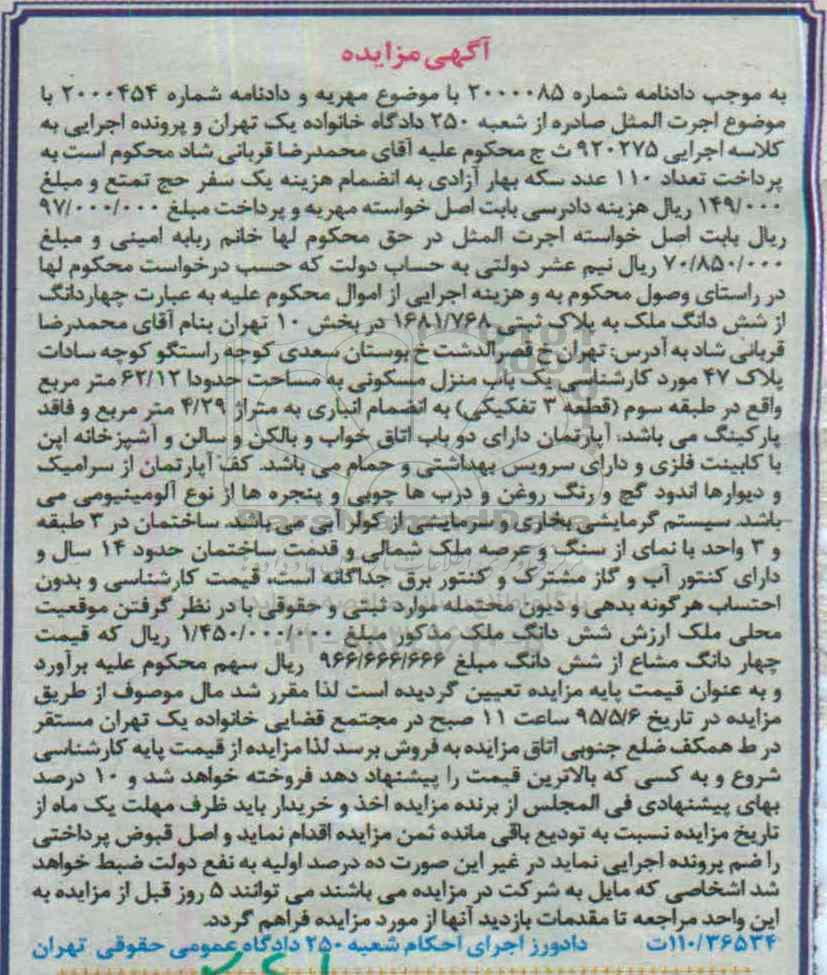 آگهی مزایده
به موجب دادنامه شماره ۲۰۰۰۰۸۵ با موضوع مهریه و دادنامه شماره ۲۰۰۰۴۵۴ با
موضوع اجرت المثل صادره از شعبه ۲۵۰ دادگاه خانواده یک تهران و پرونده اجرایی به
کلاسه اجرایی ۹۲۰۲۷۵ ث ج محکوم علیه آقای محمدرضا قربانی شاد محکوم است به
پرداخت تعداد ۱۱۰ عدد سکه بهار آزادی به انضمام هزینه یک سفر حج تمتع و مبلغ
۱۴۹/۰۰۰ ریال هزینه دادرسی بابت اصل خواسته مهریه و پرداخت مبلغ ۹۷/۰۰۰/۰۰۰
ریال بابت اصل خواسته اجرت المثل در حق محکوم لها خانم ربابه امینی و مبلغ
۷۰/۸۵۰/۰۰۰ ریال نیم عشر دولتی به حساب دولت که حسب درخواست محکوم لها
در راستای وصول محکوم به و هزینه اجرایی از اموال محکوم علیه به عبارت چهاردانگ
از شش دانگ ملک به پلاک ثبتی ۱۶۸۱/۷۶۸ در بخش ۱۰ تهران بنام آقای محمدرضا
قربانی شاد به آدرس: تهران خ قصرالدشت خ بوستان سعدی کوچه راستگو کوچه سادات
پلاک ۴۷ مورد کارشناسی یک باب منزل مسکونی به مساحت حدودا ۶۲/۱۲ متر مربع
واقع در طبقه سوم (قطعه ۳ تفکیکی) به انضمام انباری به متراژ ۴/۲۹ متر مربع و فاقد
پارکینگ می باشد، آپارتمان دارای دو باب اتاق خواب و بالکن و سالن و آشپزخانه اپن
با کابینت فلزی و دارای سرویس بهداشتی و حمام می باشد. کف آپارتمان از سرامیک
و دیوارها اندود گچ و رنگ روغن و درب ها چوبی و پنجره ها از نوع آلومینیومی می
باشد. سیستم گرمایشی بخاری و سرمایشی از کولر آبی می باشد. ساختمان در ۳ طبقه
و ۳ واحد با نمای از سنگ و عرصه ملک شمالی و قدمت ساختمان حدود ۱۴ سال و
دارای کنتور آب و گاز مشترک و کنتور برق جداگانه است، قیمت کارشناسی و بدون
احتساب هرگونه بدهی و دیون محتمله موارد ثبتی و حقوقی با در نظر گرفتن موقعیت
محلی ملک ارزش شش دانگ ملک مذکور مبلغ ۱/۴۵۰/۰۰۰/۰۰۰ ریال که قیمت
چهار دانگ مشاع از شش دانگ مبلغ ۹۶۶/۶۶۶/۶۶۶ ریال سهم محکوم علیه برآورد
و به عنوان قیمت پایه مزایده تعیین گردیده است لذا مقرر شد مال موصوف از طریق
مزایده در تاریخ ۹۵/۵/۶ ساعت ۱۱ صبح در مجتمع قضایی خانواده یک تهران مستقر
در ط همکف ضلع جنوبی اتاق مزایده به فروش برسد لذا مزایده از قیمت پایه کارشناسی
شروع و به کسی که بالاترین قیمت را پیشنهاد دهد فروخته خواهد شد و ۱۰ درصد
بهای پیشنهادی فی المجلس از برنده مزایده اخذ و خریدار باید ظرف مهلت یک ماه از
تاریخ مزایده نسبت به تودیع باقی مانده ثمن مزایده اقدام نماید و اصل قبوض پرداختی
را ضم پرونده اجرایی نماید در غیر این صورت ده درصد اولیه به نفع دولت ضبط خواهد
شد اشخاصی که مایل به شرکت در مزایده می باشند می توانند ۵ روز قبل از مزایده به
این واحد مراجعه تا مقدمات بازدید آنها از مورد مزایده فراهم گردد.
۱۱۰/۳۶۵۳۴ت دادورز اجرای احکام شعبه ۲۵۰ دادگاه عمومی حقوقی تهران